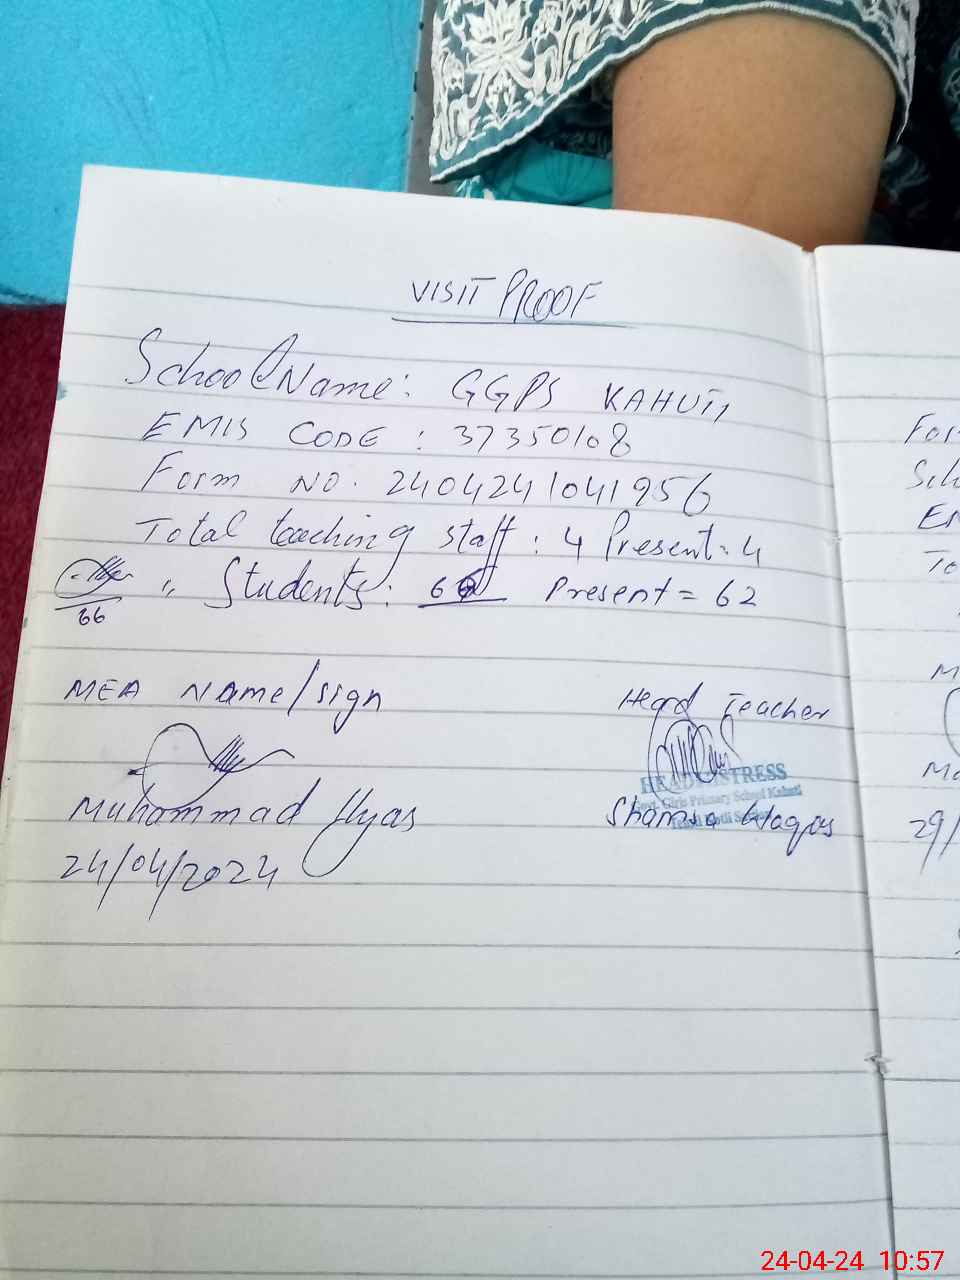 VISIT PROOF
School Name: GGPS KAHUTI
EMIS CODE : 37350108
Form NO. 2404241041956
Total teaching staff : 4 Present = 4
" Students: 66 Present = 62
66
MEA Name/sign
Head Teacher
HEADMISTRESS
Govt. Girls Primary School Kahuti
Muhammad Ilyas
Shamsa
24/04/2024
For
Sch
EM
To
M
29/
24-04-24 10:57